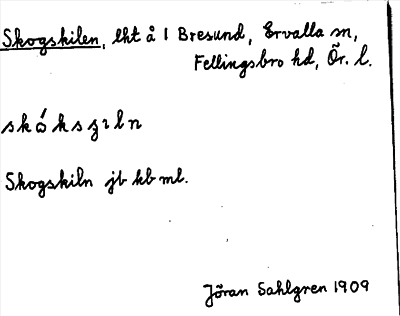 Skogskilen, lht å 1 Bresund, Ervalla sn,
Fellingsbro hd, Ör. l.
Skogskiln jb kb ml.
Jöran Sahlgren 1909